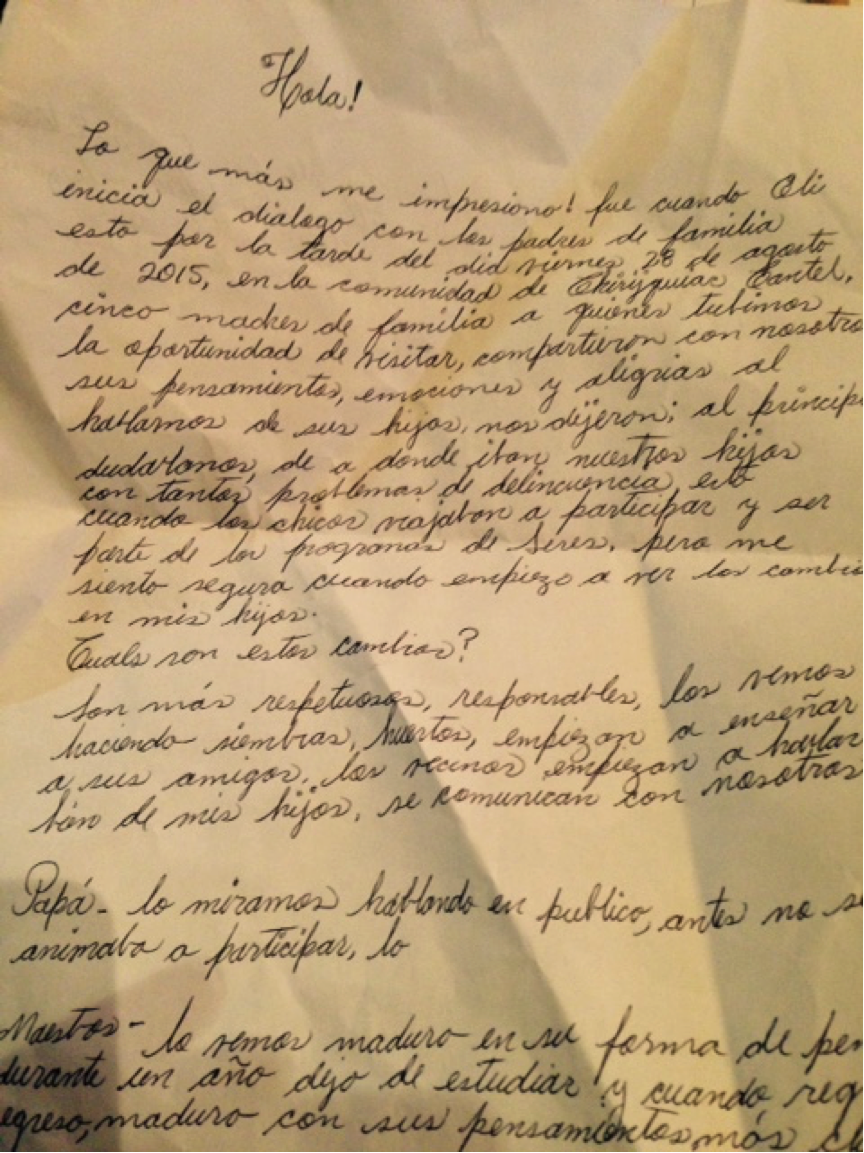 Hola!
Lo que más me impresiono! fue cuando Eli
inicia el dialogo con los padres de familia
esto por la tarde del dia viernes 28 de agosto
de 2015, en la comunidad de Chirijquiac Cantel,
cinco madres de familia a quienes tubimos
la oportunidad de visitar, compartieron con nosotro
sus pensamientos, emociones y aligrias al
hablarnos de sus hijos, nos dijeron; al principi
dudabamos, de a donde iban nuestros hijos
con tantos problemas de delincuencia, esto
cuando los chicos viajaban a participar y ser
parte de los programas de Seres, pero me
siento segura cuando empiezo a ver los cambio
en mis hijos.
Cuals son estos cambios?
Son más respetuosos, responsables, los vemos
haciendo siembras, huertos, empiezan a enseñar
a sus amigos, los vecinos empiezan a hablar
bien de mis hijos, se comunican con nosotros
Papá- lo miramos hablando en publico, antes no se
animaba a participar, lo
Maestros- lo vemos maduro en su forma de pen
durante un año dejo de estudiar y cuando reg
egreso, maduro con sus pensamientos más cl